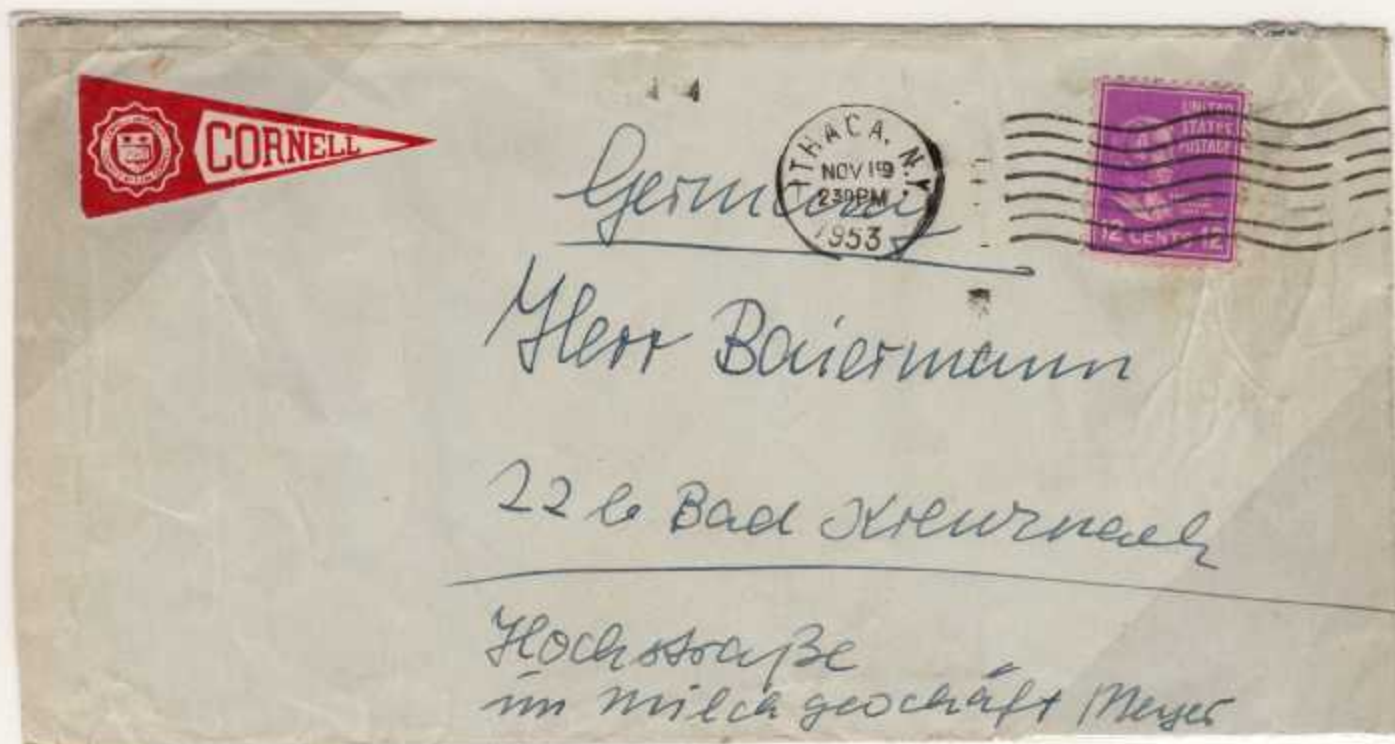 CORNELL
ITHACA, N.Y.
NOV 19
2 30 PM
1953
UNITED
STATES
POSTAGE
12 CENTS 12
Germany
Herr Baiermann
22 b Bad Kreuznach
Hochstraße
im Milchgeschäft Meyer